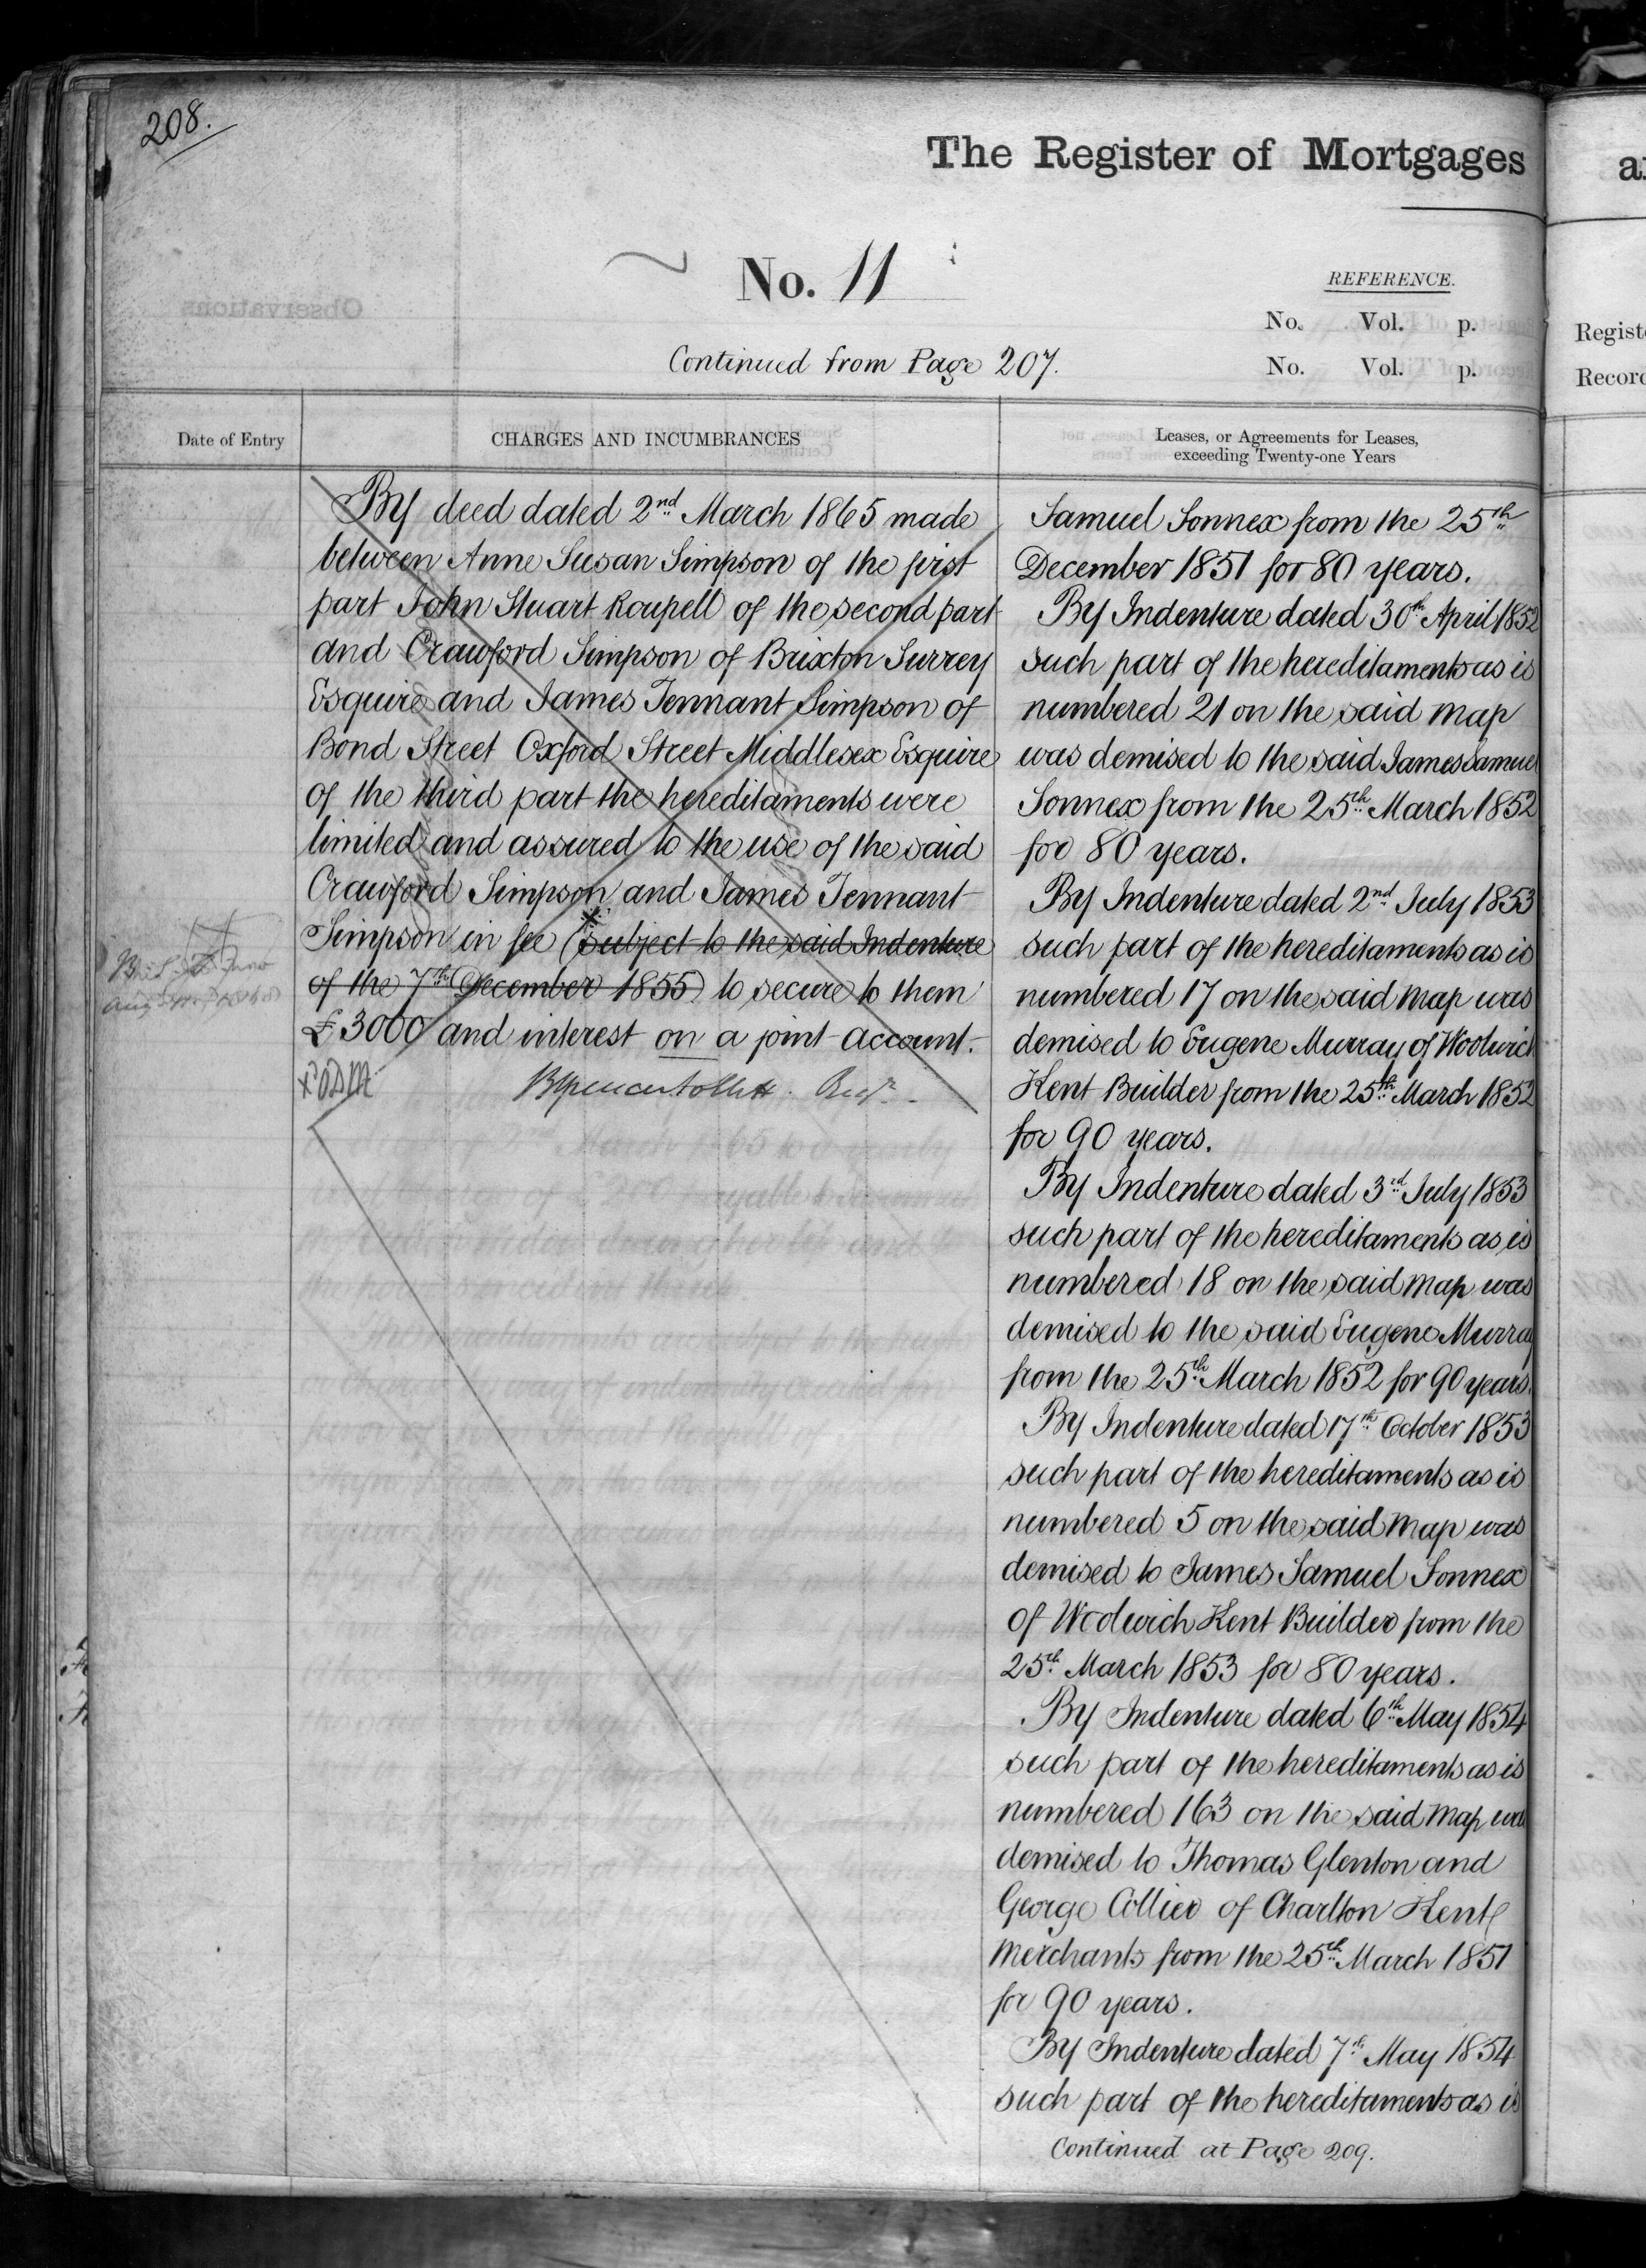 208.
The Register of Mortgages
No. 11
REFERENCE.
No. Vol. p.
No. Vol. p.
Continued from Page 207.
Date of Entry
CHARGES AND INCUMBRANCES
By deed dated 2nd March 1865 made
between Anne Susan Simpson of the first
part John Stuart Roupell of the second part
and Crawford Simpson of Brixton Surrey
Esquire and James Tennant Simpson of
Bond Street Oxford Street Middlesex Esquire
of the third part the hereditaments were
limited and assured to the use of the said
Crawford Simpson and James Tennant
Simpson in fee (subject to the said Indenture
of the 7th December 1855) to secure to them
£3000 and interest on a joint account.
Leases, or Agreements for Leases,
exceeding Twenty-one Years
Samuel Sonnex from the 25th
December 1851 for 80 years.
By Indenture dated 30th April 1852
such part of the hereditaments as is
numbered 21 on the said map
was demised to the said James Samuel
Sonnex from the 25th March 1852
for 80 years.
By Indenture dated 2nd July 1853
such part of the hereditaments as is
numbered 17 on the said map was
demised to Eugene Murray of Woolwich
Kent Builder from the 25th March 1852
for 90 years.
By Indenture dated 3rd July 1853
such part of the hereditaments as is
numbered 18 on the said map was
demised to the said Eugene Murray
from the 25th March 1852 for 90 years.
By Indenture dated 17th October 1853
such part of the hereditaments as is
numbered 5 on the said map was
demised to James Samuel Sonnex
of Woolwich Kent Builder from the
25th March 1853 for 80 years.
By Indenture dated 6th May 1854
such part of the hereditaments as is
numbered 163 on the said map was
demised to Thomas Glenton and
George Collier of Charlton Kent
Merchants from the 25th March 1851
for 90 years.
By Indenture dated 7th May 1854
such part of the hereditaments as is
Continued at Page 209.
Regist
Record